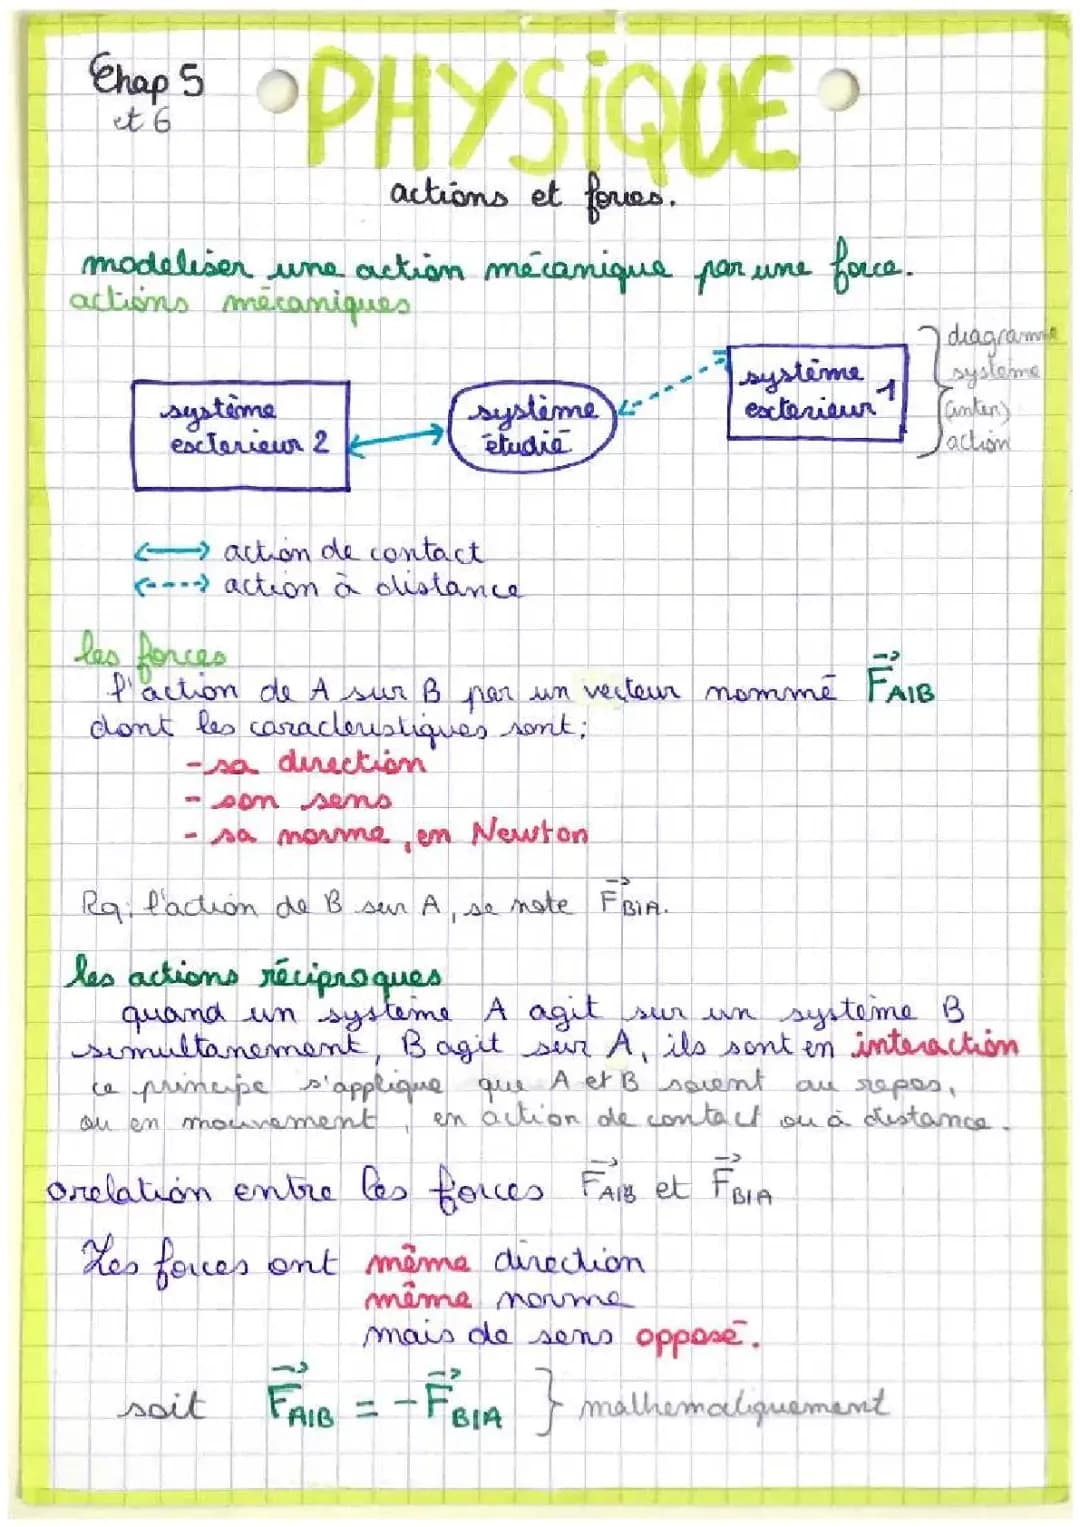 Chap 5
et 6
PHYSIQUE
actions et forces.
modeliser une action mécanique par une force.
actions mécaniques
système
exterieur 2
système
étudié
système
exterieur 1
diagramme
système
(inter)
action
action de contact
action à distance
les forces
l'action de A sur B par un vecteur nommé F⃗A/B
dont les caracteristiques sont:
- sa direction
- son sens
- sa norme, en Newton
Rq: l'action de B sur A, se note F⃗B/A.
les actions réciproques
quand un système A agit sur un système B
simultanement, B agit sur A, ils sont en interaction
ce principe s'applique que A et B soient au repos,
ou en mouvement, en action de contact ou à distance.
relation entre les forces F⃗A/B et F⃗B/A
Les forces ont même direction
même norme
mais de sens opposé.
soit F⃗A/B = -F⃗B/A } mathematiquement